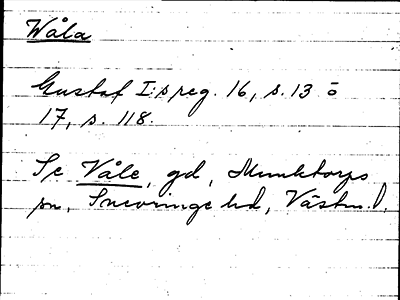 Wåla
Gustaf I:s reg. 16, s. 13 o
17, s. 118.
Se Våle, gd, Munktorps
sn, Snevringe hd, Västm. l.